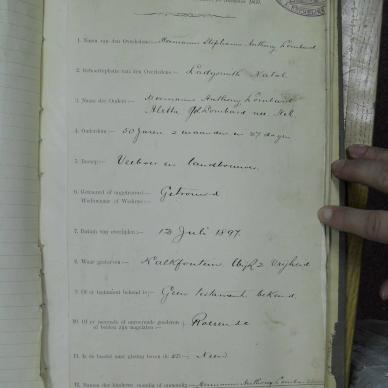 1. Naam van den Overledene:— Hermanus Stephanus Anthony Lombard
2. Geboorteplaats van den Overledene:— Ladysmith Natal
3. Namen der Ouders:— Hermanus Anthony Lombard
Aletta Lombard
4. Ouderdom:— 50 Jaren 2 maanden en 27 dagen
5. Beroep:— Veeboer en landbouwer.
6. Getrouwd of ongetrouwd:— Getrouwd
Weduwnaar of Weduwe:—
7. Datum van overlijden:— 12 Juli 1897.
8. Waar gestorven:— Kalkfontein Vrijheid
9. Of er testament bekend is:— Geen testament bekend.
10. Of er roerende of onroerende goederen
of beiden zijn nagelaten:— Roerende
11. Is de boedel naar gissing boven de £ :— Neen
12. Namen der kinderen, Hermanus Anthony Lombard